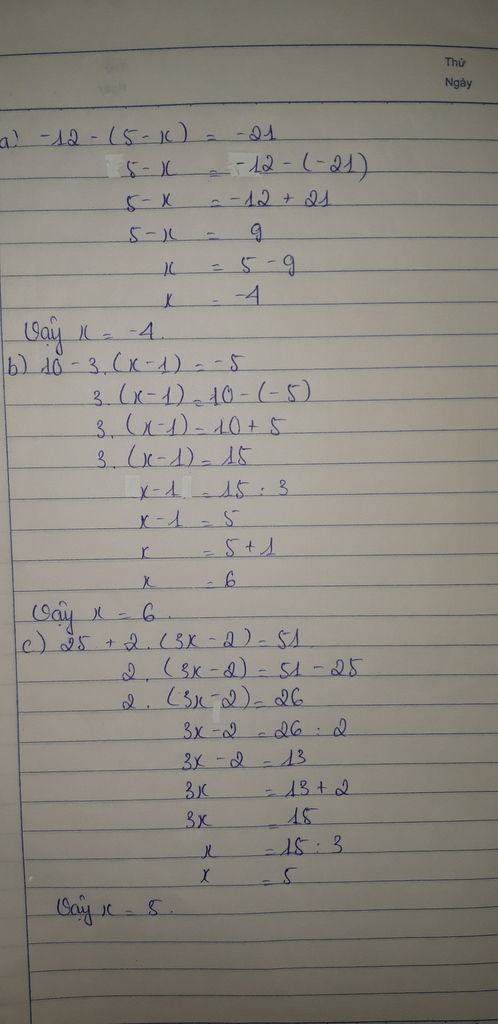 Thứ
Ngày
a) -12 - (5 - x) = -21
5 - x = -12 - (-21)
5 - x = -12 + 21
5 - x = 9
x = 5 - 9
x = -4
Vậy x = -4.
b) 10 - 3. (x - 1) = -5
3. (x - 1) = 10 - (-5)
3. (x - 1) = 10 + 5
3. (x - 1) = 15
x - 1 = 15 : 3
x - 1 = 5
x = 5 + 1
x = 6
Vậy x = 6.
c) 25 + 2. (3x - 2) = 51
2. (3x - 2) = 51 - 25
2. (3x - 2) = 26
3x - 2 = 26 : 2
3x - 2 = 13
3x = 13 + 2
3x = 15
x = 15 : 3
x = 5
Vậy x = 5.